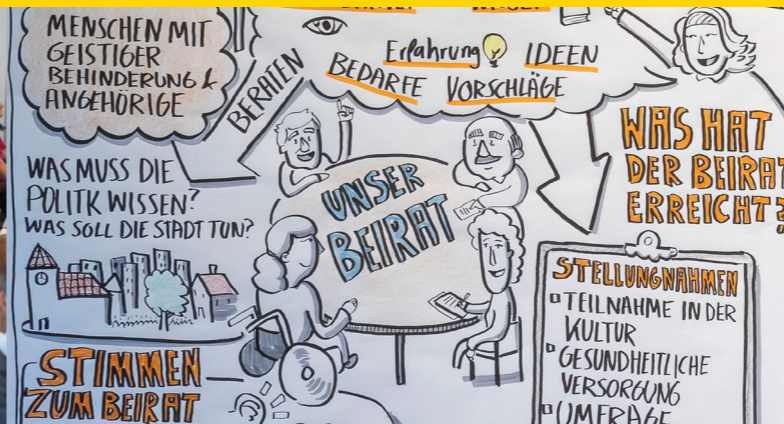 MENSCHEN MIT
GEISTIGER
BEHINDERUNG &
ANGEHÖRIGE
BERATEN
Erfahrung IDEEN
BEDARFE VORSCHLÄGE
WAS MUSS DIE
POLITK WISSEN?
WAS SOLL DIE STADT TUN?
UNSER
BEIRAT
WAS HAT
DER BEIRAT
ERREICHT?
STELLUNGNAHMEN
TEILNAHME IN DER
KULTUR
GESUNDHEITLICHE
VERSORGUNG
UMFRAGE
STIMMEN
ZUM BEIRAT